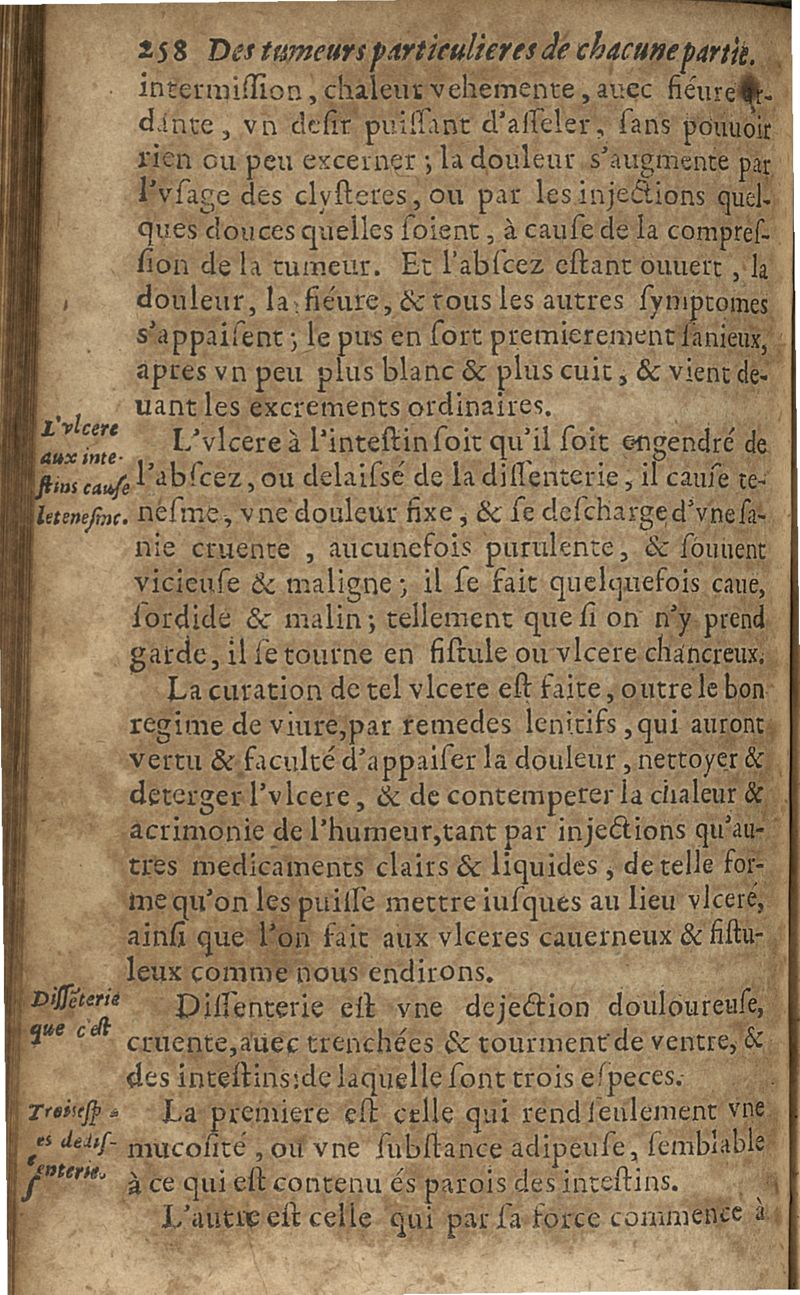 258 Des tumeurs particulieres de chacune partie.
intermiſſion, chaleur vehemente, auec fiéure ar-
dante, vn deſir puiſſant d'aſſeler, ſans pouuoir
rien ou peu excerner ; la douleur s'augmente par
l'vſage des clyſteres, ou par les injections quel-
ques douces quelles ſoient, à cauſe de la compreſ-
ſion de la tumeur. Et l'abſcez eſtant ouuert, la
douleur, la fiéure, & tous les autres ſymptomes
s'appaiſent ; le pus en ſort premierement ſanieux,
apres vn peu plus blanc & plus cuit, & vient de-
uant les excrements ordinaires.
L'vlcere
aux inte-
ſtins cauſe
le teneſme.
L'vlcere à l'inteſtin ſoit qu'il ſoit engendré de
l'abſcez, ou delaiſsé de la diſſenterie, il cauſe te-
neſme, vne douleur fixe, & ſe deſcharge d'vne ſa-
nie cruente , aucunefois purulente, & ſouuent
vicieuſe & maligne ; il ſe fait quelquefois caue,
ſordide & malin ; tellement que ſi on n'y prend
garde, il ſe tourne en fiſtule ou vlcere chancreux.
La curation de tel vlcere eſt faite, outre le bon
regime de viure, par remedes lenitifs, qui auront
vertu & faculté d'appaiſer la douleur, nettoyer &
deterger l'vlcere, & de contemperer la chaleur &
acrimonie de l'humeur, tant par injections qu'au-
tres medicaments clairs & liquides, de telle for-
me qu'on les puiſſe mettre iuſques au lieu vlceré,
ainſi que l'on fait aux vlceres cauerneux & fiſtu-
leux comme nous endirons.
Diſſéterie
que c'eſt
Diſſenterie eſt vne dejection douloureuſe,
cruente, auec trenchées & tourment de ventre, &
des inteſtins : de laquelle ſont trois eſpeces.
Trois eſp
es de diſ-
ſenterie.
La premiere eſt celle qui rend ſeulement vne
mucoſité, ou vne ſubſtance adipeuſe, ſemblable
à ce qui eſt contenu és parois des inteſtins.
L'autre eſt celle qui par ſa force commence à